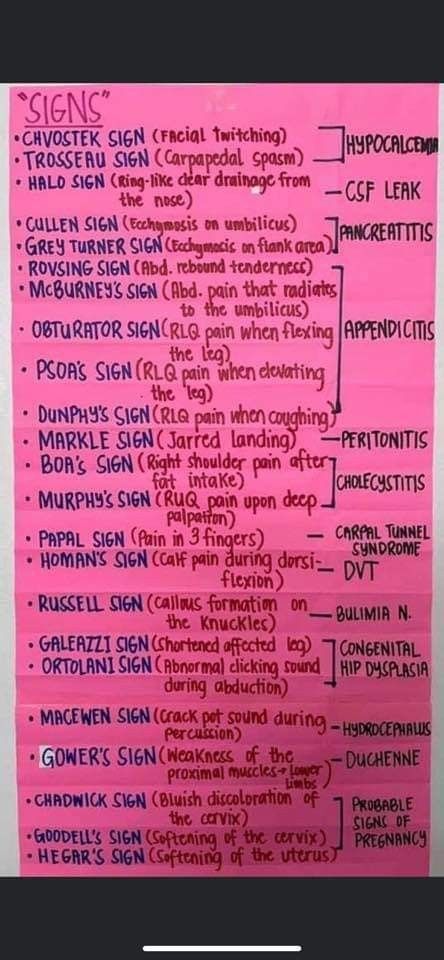 "SIGNS"
• CHVOSTEK SIGN (Facial twitching)
• TROSSEAU SIGN (Carpapedal spasm)
HYPOCALCEMIA
• HALO SIGN (Ring-like clear drainage from
the nose)
- CSF LEAK
• CULLEN SIGN (Ecchymosis on umbilicus)
• GREY TURNER SIGN (Ecchymosis on flank area)
PANCREATITIS
• ROVSING SIGN (Abd. rebound tenderness)
• McBURNEY'S SIGN (Abd. pain that radiates
to the umbilicus)
• OBTURATOR SIGN (RLQ pain when flexing
the leg)
APPENDICITIS
• PSOA'S SIGN (RLQ pain when elevating
the leg)
• DUNPHY'S SIGN (RLQ pain when coughing)
• MARKLE SIGN (Jarred landing)
- PERITONITIS
• BOA'S SIGN (Right shoulder pain after
fat intake)
• MURPHY'S SIGN (RUQ pain upon deep
palpation)
CHOLECYSTITIS
• PAPAL SIGN (Pain in 3 fingers)
- CARPAL TUNNEL
SYNDROME
• HOMAN'S SIGN (Calf pain during dorsi-
flexion)
- DVT
• RUSSELL SIGN (Callous formation on
the knuckles)
- BULIMIA N.
• GALEAZZI SIGN (Shortened affected leg)
• ORTOLANI SIGN (Abnormal clicking sound
during abduction)
CONGENITAL
HIP DYSPLASIA
• MACEWEN SIGN (Crack pot sound during
percussion)
- HYDROCEPHALUS
• GOWER'S SIGN (Weakness of the
proximal muscles → Lower
limbs)
- DUCHENNE
• CHADWICK SIGN (Bluish discoloration of
the cervix)
• GOODELL'S SIGN (Softening of the cervix)
• HEGAR'S SIGN (Softening of the uterus)
PROBABLE
SIGNS OF
PREGNANCY